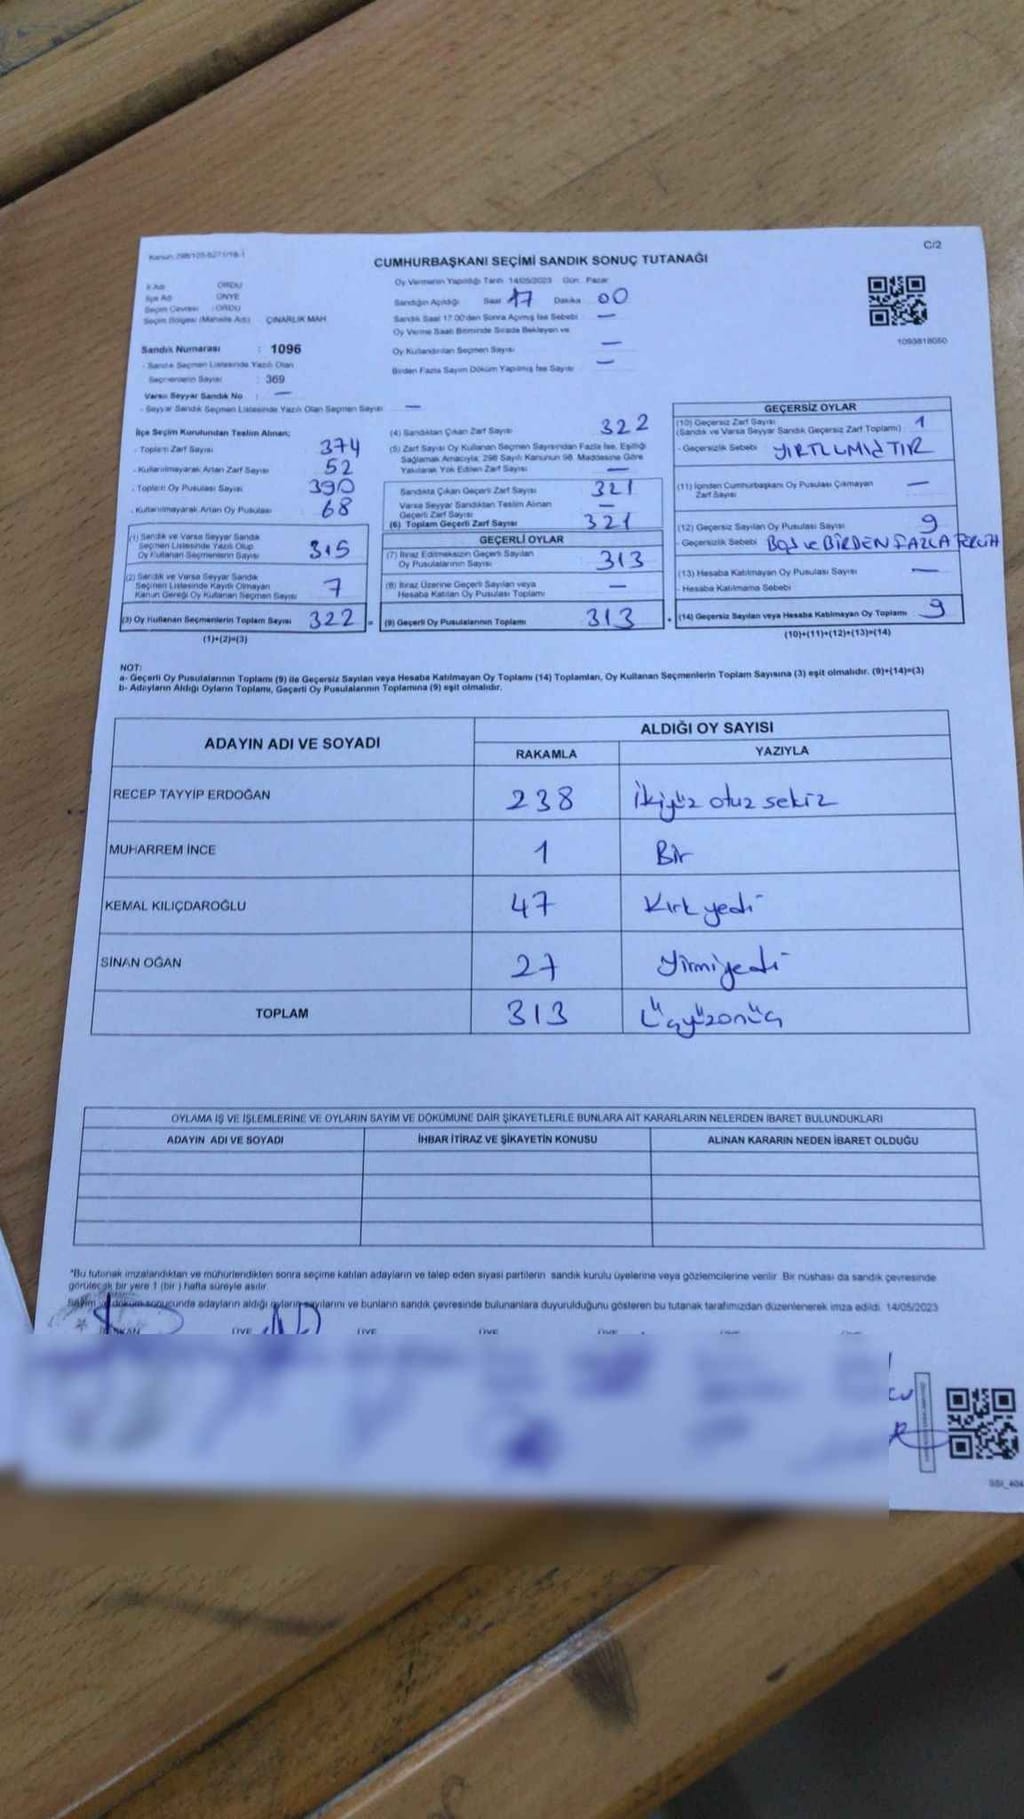 Kanun: 298/105-6271/18-1
C/2
CUMHURBAŞKANI SEÇİMİ SANDIK SONUÇ TUTANAĞI
İl Adı : ORDU
İlçe Adı : ÜNYE
Seçim Çevresi : ORDU
Seçim Bölgesi (Mahalle Adı) : ÇINARLIK MAH.
Sandık Numarası : 1096
- Sandık Seçmen Listesinde Yazılı Olan
Seçmenlerin Sayısı : 369
Varsa Seyyar Sandık No : —
- Seyyar Sandık Seçmen Listesinde Yazılı Olan Seçmen Sayısı —
Oy Vermenin Yapıldığı Tarih: 14/05/2023 Gün: Pazar
Sandığın Açıldığı Saat 17 Dakika 00
Sandık Saat 17:00'den Sonra Açılmış İse Sebebi : —
Oy Verme Saati Bitiminde Sırada Bekleyen ve
Oy Kullandırılan Seçmen Sayısı —
Birden Fazla Sayım Döküm Yapılmış İse Sayısı —
1093818050
İlçe Seçim Kurulundan Teslim Alınan;
- Toplam Zarf Sayısı 374
- Kullanılmayarak Artan Zarf Sayısı 52
- Toplam Oy Pusulası Sayısı 390
- Kullanılmayarak Artan Oy Pusulası 68
(1) Sandık ve Varsa Seyyar Sandık
Seçmen Listesinde Yazılı Olup
Oy Kullanan Seçmenlerin Sayısı 315
(2) Sandık ve Varsa Seyyar Sandık
Seçmen Listesinde Kayıtlı Olmayan
Kanun Gereği Oy Kullanan Seçmen Sayısı 7
(3) Oy Kullanan Seçmenlerin Toplam Sayısı 322 =
(1)+(2)=(3)
(4) Sandıktan Çıkan Zarf Sayısı 322
(5) Zarf Sayısı Oy Kullanan Seçmen Sayısından Fazla İse, Eşitliği
Sağlamak Amacıyla; 298 Sayılı Kanunun 98. Maddesine Göre
Yakılarak Yok Edilen Zarf Sayısı —
Sandıkta Çıkan Geçerli Zarf Sayısı 321
Varsa Seyyar Sandıktan Teslim Alınan
Geçerli Zarf Sayısı —
(6) Toplam Geçerli Zarf Sayısı 321
GEÇERLİ OYLAR
(7) İtiraz Edilmeksizin Geçerli Sayılan
Oy Pusulalarının Sayısı 313
(8) İtiraz Üzerine Geçerli Sayılan veya
Hesaba Katılan Oy Pusulası Toplamı —
(9) Geçerli Oy Pusulalarının Toplamı 313 +
GEÇERSİZ OYLAR
(10) Geçersiz Zarf Sayısı 1
(Sandık ve Varsa Seyyar Sandık Geçersiz Zarf Toplamı)
- Geçersizlik Sebebi YIRTILMIŞTIR
(11) İçinden Cumhurbaşkanı Oy Pusulası Çıkmayan
Zarf Sayısı —
(12) Geçersiz Sayılan Oy Pusulası Sayısı 9
- Geçersizlik Sebebi BOŞ ve BİRDEN FAZLA TERCİH
(13) Hesaba Katılmayan Oy Pusulası Sayısı —
- Hesaba Katılmama Sebebi
(14) Geçersiz Sayılan veya Hesaba Katılmayan Oy Toplamı 9
(10)+(11)+(12)+(13)=(14)
NOT:
a- Geçerli Oy Pusulalarının Toplamı (9) ile Geçersiz Sayılan veya Hesaba Katılmayan Oy Toplamı (14) Toplamları, Oy Kullanan Seçmenlerin Toplam Sayısına (3) eşit olmalıdır. (9)+(14)=(3)
b- Adayların Aldığı Oyların Toplamı, Geçerli Oy Pusulalarının Toplamına (9) eşit olmalıdır.
ADAYIN ADI VE SOYADI
ALDIĞI OY SAYISI
RAKAMLA YAZIYLA
RECEP TAYYİP ERDOĞAN 238 İkiyüz otuz sekiz
MUHARREM İNCE 1 Bir
KEMAL KILIÇDAROĞLU 47 Kırk yedi
SİNAN OĞAN 27 Yirmiyedi
TOPLAM 313 Üçyüzonüç
OYLAMA İŞ VE İŞLEMLERİNE VE OYLARIN SAYIM VE DÖKÜMÜNE DAİR ŞİKAYETLERLE BUNLARA AİT KARARLARIN NELERDEN İBARET BULUNDUKLARI
ADAYIN ADI VE SOYADI İHBAR İTİRAZ VE ŞİKAYETİN KONUSU ALINAN KARARIN NEDEN İBARET OLDUĞU
*Bu tutanak imzalandıktan ve mühürlendikten sonra seçime katılan adayların ve talep eden siyasi partilerin sandık kurulu üyelerine veya gözlemcilerine verilir. Bir nüshası da sandık çevresinde
görülecek bir yere 1 (bir ) hafta süreyle asılır.
Sayım ve döküm sonucunda adayların aldığı oyların sayılarını ve bunların sandık çevresinde bulunanlara duyurulduğunu gösteren bu tutanak tarafımızdan düzenlenerek imza edildi. 14/05/2023
BAŞKAN ÜYE ÜYE ÜYE ÜYE ÜYE ÜYE